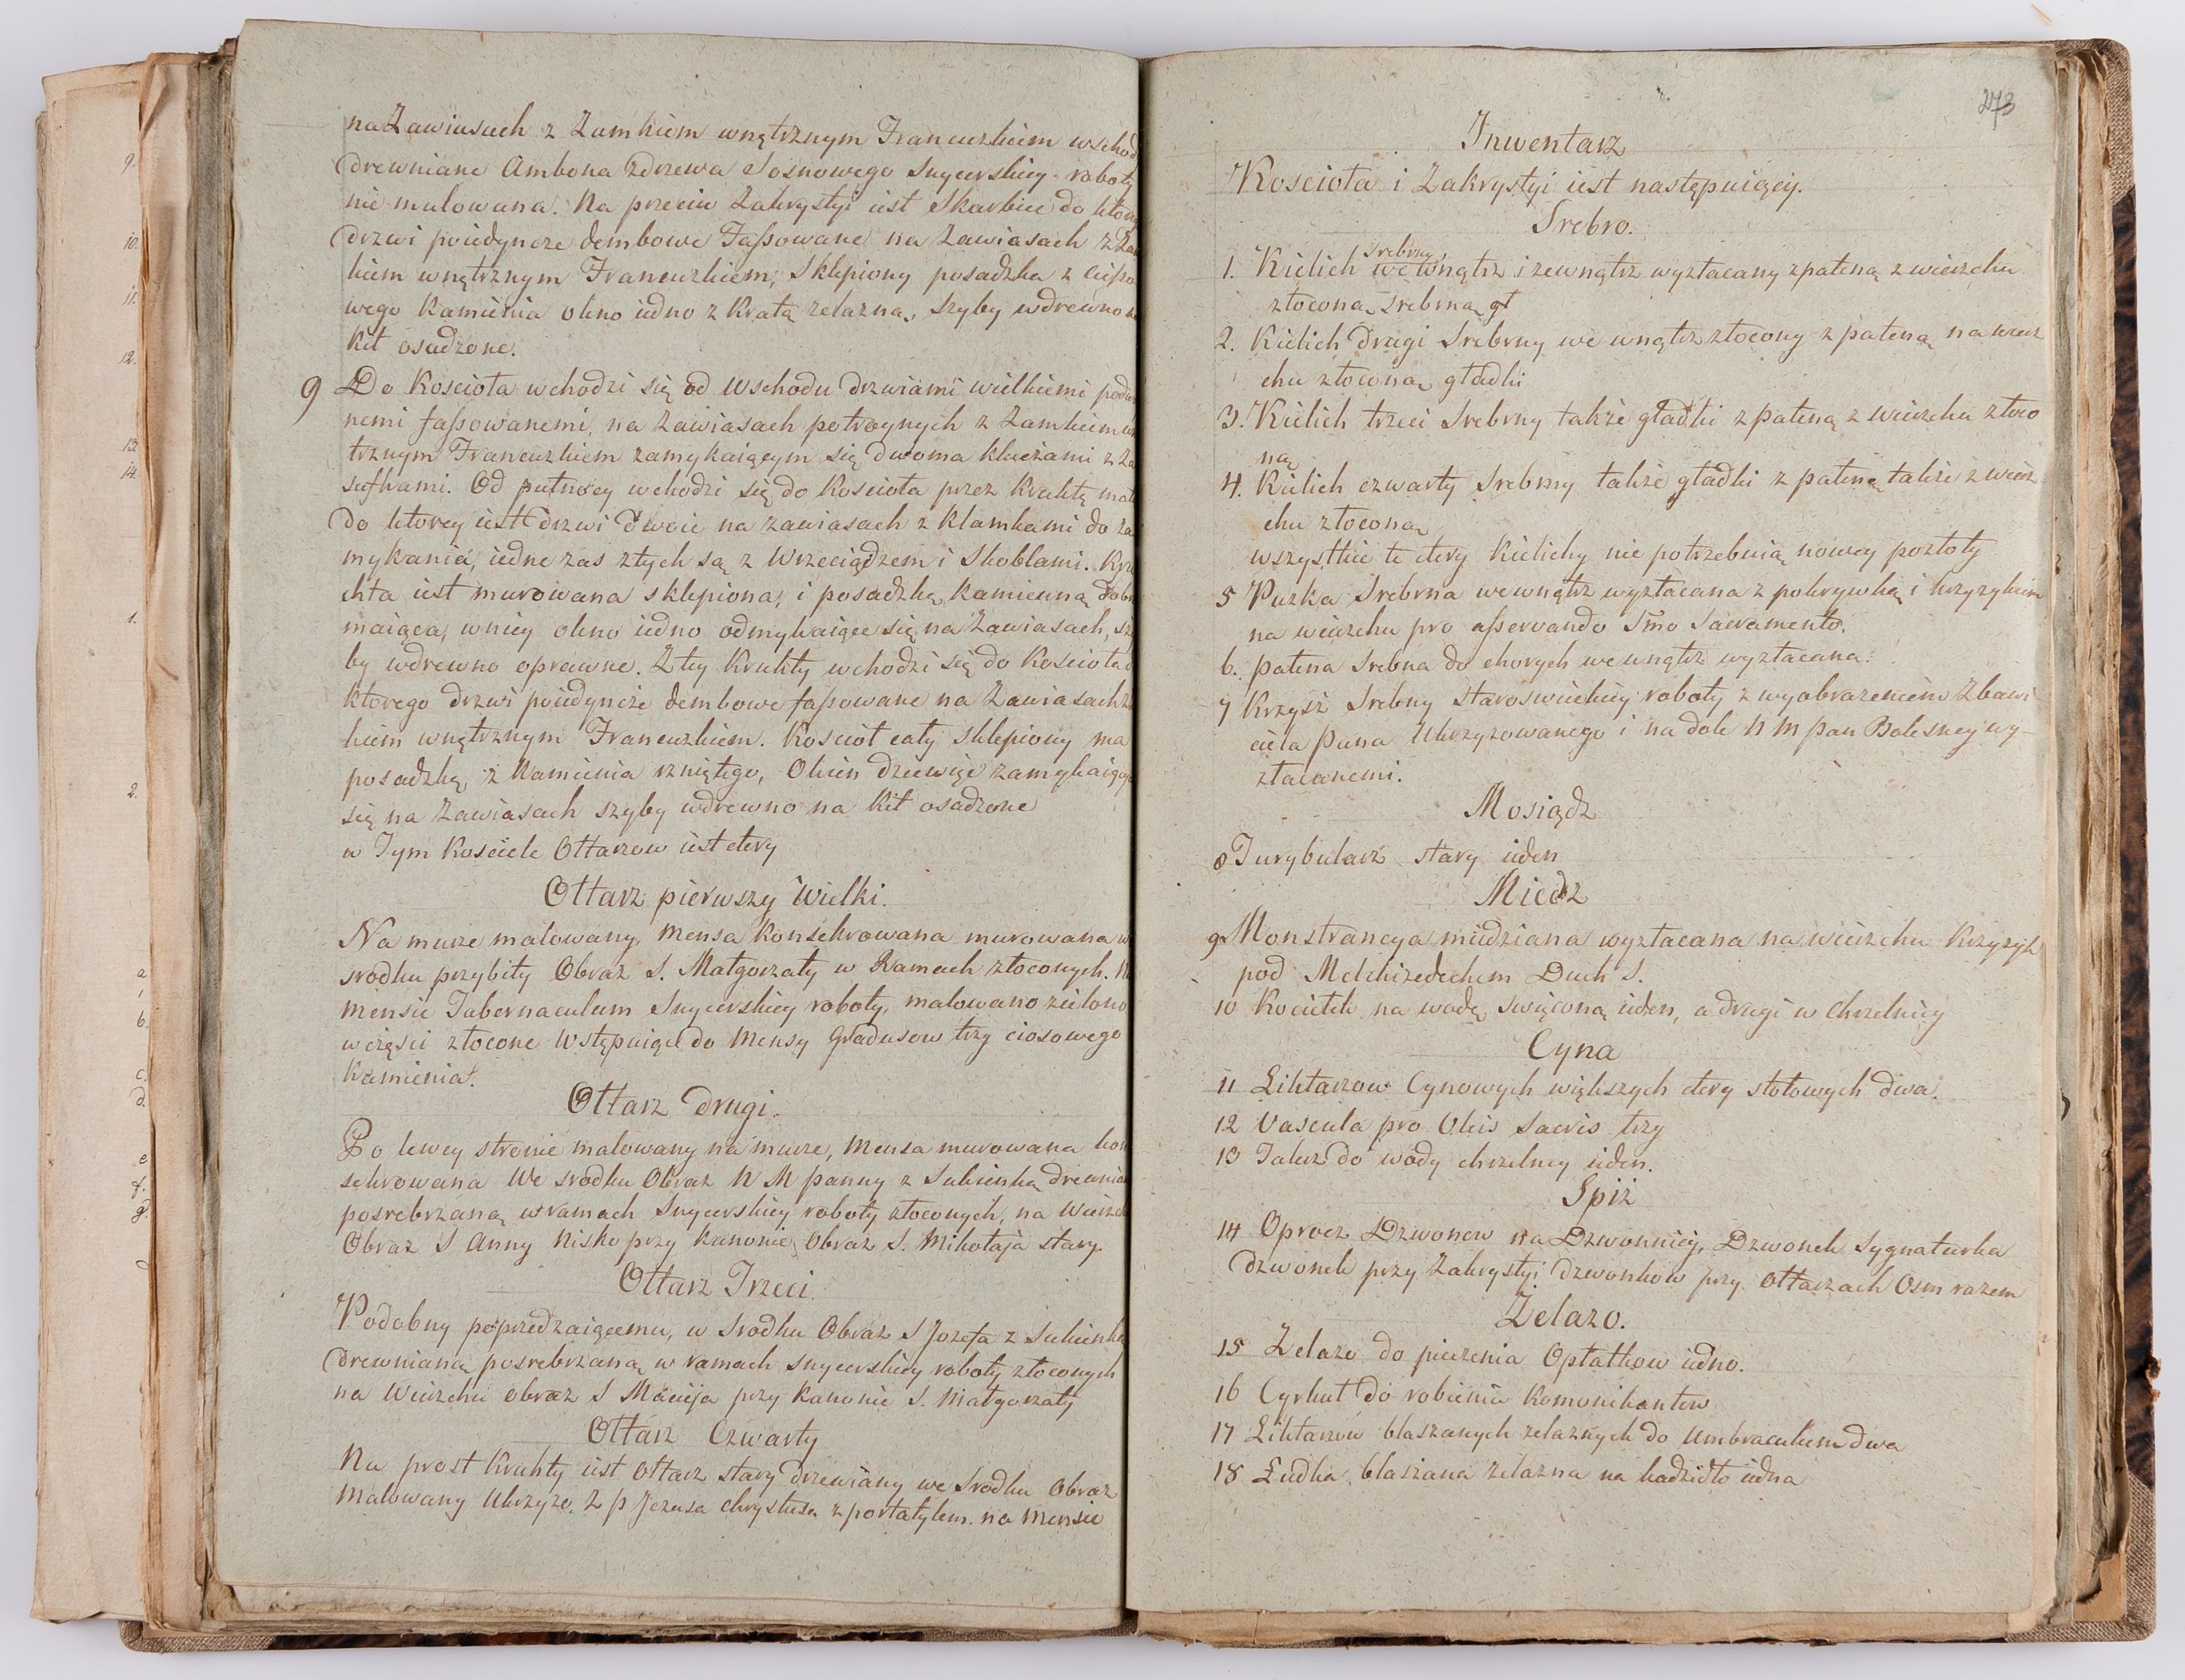 na Zawiasach z Zamkiem wnętrznym Francuzkiem wschod
drewniane Ambona zdrzewa Sosnowego Snycerskiey roboty
nie malowana. Na przeciw Zakrystyi iest Skarbiec do ktor
drzwi poiedyncze dembowe Fassowane na Zawiasach z Zam
kiem wnętrznym Francuzkiem, Sklepiony posadzka z cioso
wego Kamienia okno iedno z Kratą zelazną, Szyby wdrewno
Kit osadzone.
9 Do Kosciota wchodzi się od Wschodu drzwiami wielkiemi podw
nemi fassowanemi, na Zawiasach potroynych z Zamkiem
trznym Francuzkiem zamykaiącym się dwoma kluczami z Za
sufkami. Od putnocy wchodzi się do Kosciota przez Kruhtę mat
do ktorey iest drzwi dwoie na zawiasach z Klamkami do Za
mykania, iedne zas ztych są z Wrzeciądzem i Skoblami. Kru
chta iest murowana sklepiona, i posadzkę kamienną dobr
maiąca, wniey okno iedno odmykaiące się na Zawiasach, szy
by wdrewno oprawne. Ztey Kruhty wchodzi się do Kosciota
ktorego drzwi poiedyncze dembowe fassowane na Zawiasach z
kiem wnętrznym Francuzkiem. Kosciot caty Sklepiony ma
posadzkę z Kamienia rzniętego, Okien dziewięc zamykaiący
się na Zawiasach szyby wdrewno na Kit osadzone
w Tym Kosciele Ottarzow iest cztery
Ottarz pierwszy Wielki.
Na murze malowany, Mensa Konsekrowana murowana w
srodku przybity Obraz S. Matgorzaty w Ramach ztoconych. N
Mensie Tabernaculum Snycerskiey roboty, malowano zielono
wczęsci ztocone Wstępuiąc do Mensy Gradusow trzy ciosowego
Kamienia.
Ottarz drugi.
Po lewey stronie malowany na murze, Mensa murowana kon
sekrowana We srodku Obraz N M panny z Sukienką drewnia
posrebrzaną w ramach Snycerskiey roboty ztoconych, na Wierzch
Obraz S Anny Nisko przy Kanonie Obraz S. Mikotaja stary.
Ottarz Trzeci.
Podobny poprzedzaiącemu, w Srodku Obraz S Jozefa z Sukienką
drewnianą posrebrzaną w ramach snycerskiey roboty ztoconych
na Wierzchu obraz S Macieja przy Kanonie S. Matgorzaty
Ottarz Czwarty
Na prost Kruhty iest Ottarz stary drewiany we Srodku Obraz
Malowany Ukrzyżo. Z p Jezusa Chrystusa z portatylem na Mensie
273
Inwentarz
Kosciota i Zakrystyi iest następuiący.
Srebro.
srebrny,
1. Kielich we wnątrz i zewnątrz wyztacany zpateną z wierzchu
ztoconą, srebrną gt
2. Kielich drugi Srebrny we wnątrz ztocony z pateną na wierz
chu ztoconą gtadki
3. Kielich trzeci Srebrny także gtadki z pateną z wierzchu ztoco
ną
4. Kielich czwarty Srebrny także gtadki z pateną także z wierz
chu ztoconą
wszystkie te cztery Kielichy nie potrzebuią nowey poztoty
5 Puzka Srebrna wewnątrz wyztacana z pokrywką i krzyzykiem
na wierzchu pro asservando Smo Sacramento.
6. patena Srebna do chorych we wnątrz wyztacana.
7 Krzyż Srebny staroswieckiey roboty z wyobrazeniem Zbawi
ciela Pana Ukrzyzowanego i na dole N M pan Bolesney wy-
ztacanemi.
Mosiądz
8 Turybularz stary ieden
Miedz
9 Monstrancya miedziana wyztacana na wierzchu Krzyzyk
pod Melchizedechem Duch S.
10 Kocietek na wodę swięconą ieden, a drugi w Chrzelnicy
Cyna
11 Lihtarzow Cynowych większych cztery stotowych dwa.
12 Vascula pro Oleis Sacris trzy
13 Talerz do wody chrzelney ieden.
Spiż
14 Oprocz Dzwonow na Dzwonnicy, Dzwonek Sygnaturka
dzwonek przy Zakrystyi dzwonkow przy Ottarzach Osm razem
Żelazo.
15 Zelazo do pieczenia Optatkow iedno.
16 Cyrkut do robienia Komonikantow
17 Lihtarzow blaszanych zelaznych do Umbraculum dwa
18 Łudka blaszana zelazna na kadzidto iedna